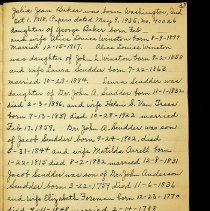 Julia Jean Baker was born Washington, Ind.
Oct 1, 1918. Papers dated May 9, 1935, no.
daughter of George Baker born Feb
and wife Alice Louise Winston born 6-9-1897
married 12-15-1917. Alice Louise Winston
was daughter of John L. Winston born 7-22-1858
and wife Laura Scudder born 7-22-1862
married 10-23-1884. Laura Scudder was
daughter of Dr. John A. Scudder born 11-1-183
died 2-3-1896, and wife Helen S. Van Trees
born 7-15-1839 died 10-28-1922 married
Feb 17, 1859. Dr. John A. Scudder was son
of Jacob Scudder born 9-24-1802, died
5-31-1844 and wife Matilda Arrell born
1-22-1815 died 8-2-1852 married 12-8-1831
Jacob Scudder was son of Dr. John Anderson
Scudder born 3-22-1759 died 11-6-1836
and wife Elizabeth Foreman born 12-23-1770